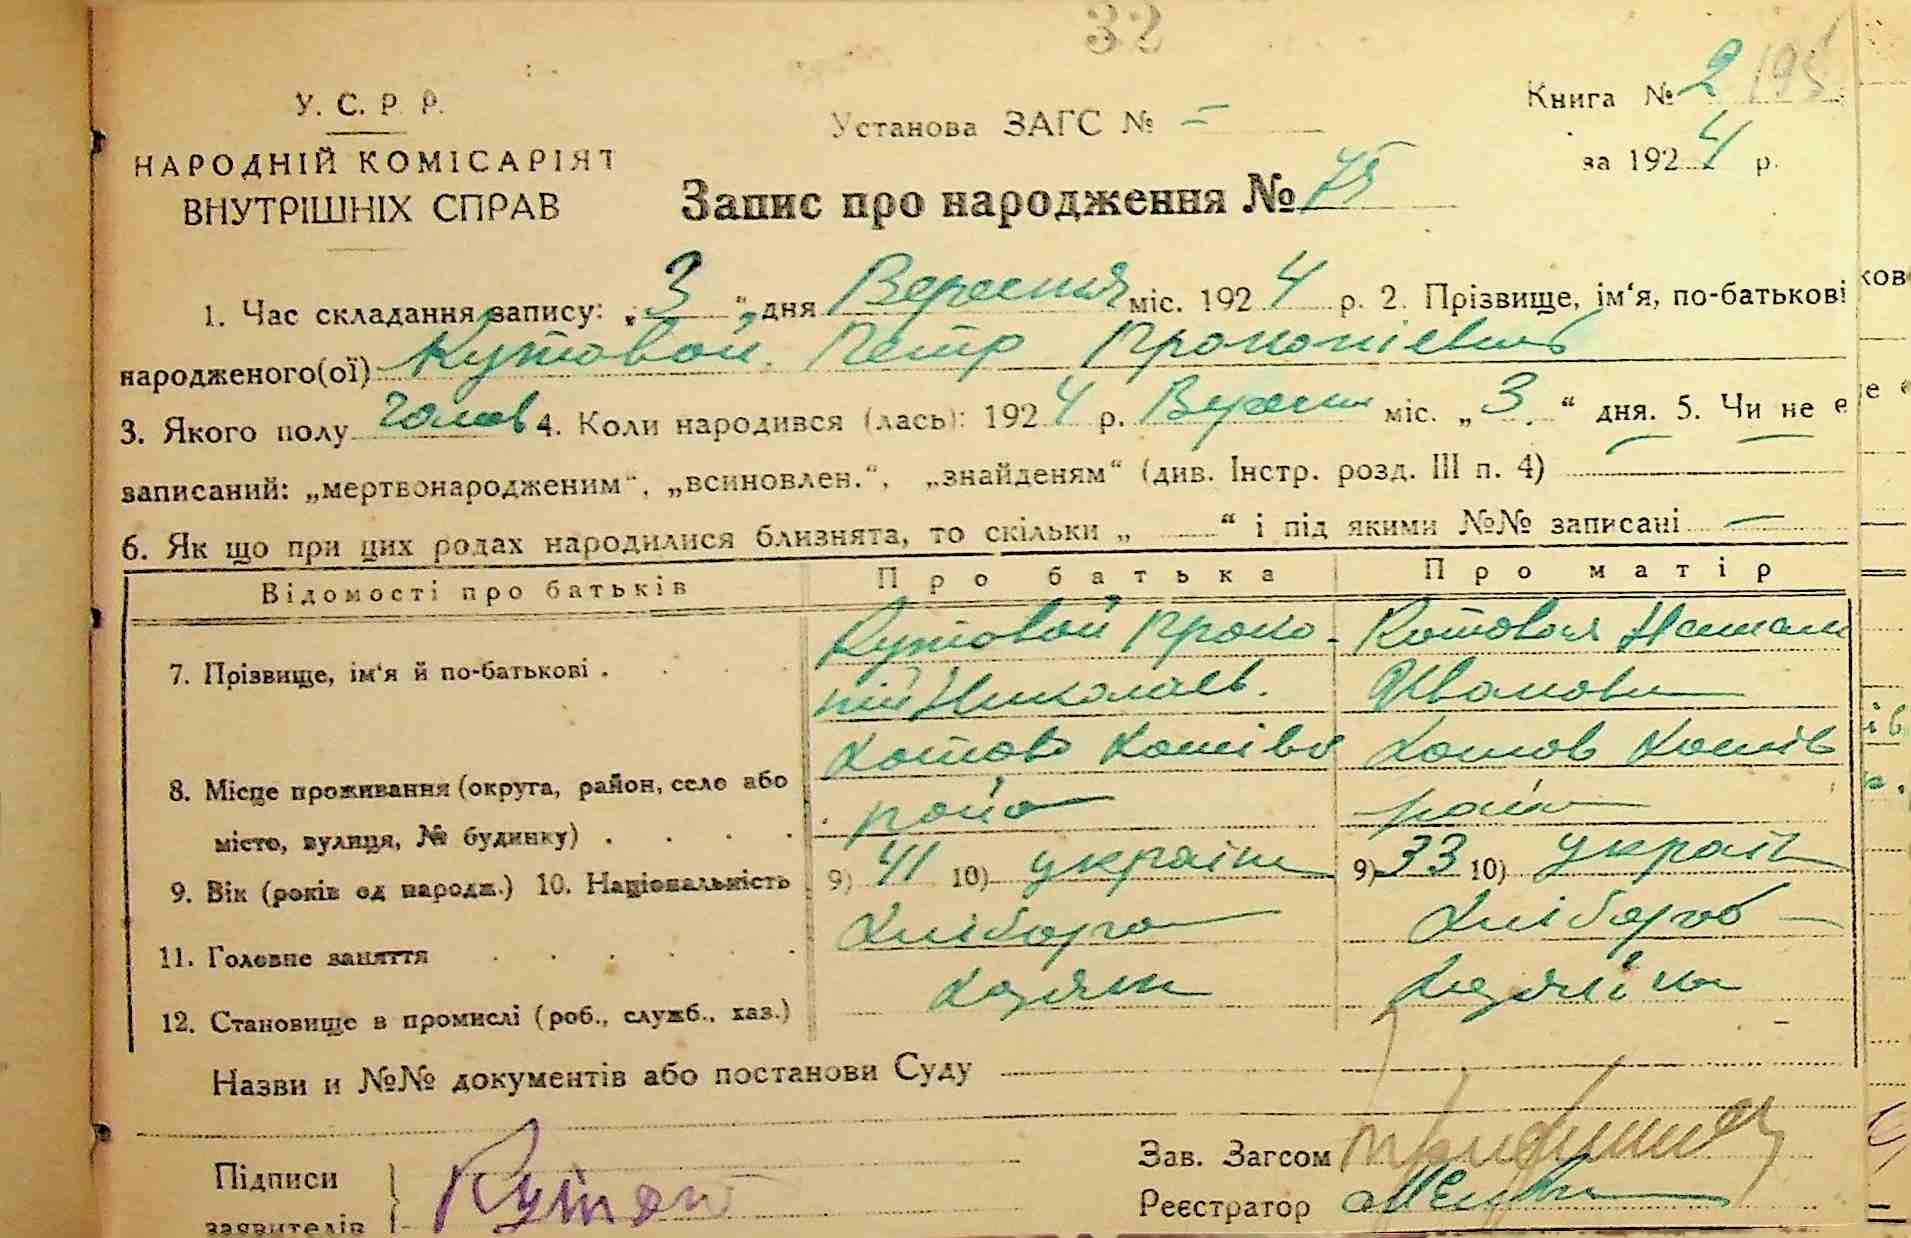 32
У. С. Р. Р.
НАРОДНІЙ КОМІСАРІЯТ
ВНУТРІШНІХ СПРАВ
Установа ЗАГС № =
Книга № 2 195
за 1924 р.
Запис про народження № 75
1. Час складання запису: „3“ дня Вересня міс. 1924 р. 2. Прізвище, ім‘я, по-батькові
народженого(ої) Кутовой Петр Прокопієвич
3. Якого полу чолов 4. Коли народився (лась): 1924 р. Вересня міс. „3.“ дня. 5. Чи не є
записаний: „мертвонародженим“, „всиновлен.“, „знайденям“ (див. Інстр. розд. III п. 4)
6. Як що при цих родах народилися близнята, то скільки „ “ і під якими №№ записані —
Відомості про батьків
Про батька
Про матір
7. Прізвище, ім‘я й по-батькові .
Кутовой Проко-
пій Николаев.
Котовая Натал
Иванови
8. Місце проживання (округа, район, село або
місто, вулиця, № будинку)
район
район
9. Вік (років од народж.) 10. Національність
9) 41 10) україн
9) 33 10) україн
11. Головне заняття
Хлібороб
Хлібороб
12. Становище в промислі (роб., служб., хаз.)
Хазяин
Хазяйка
Назви и №№ документів або постанови Суду
Підписи
заявителів
Кутовой
Зав. Загсом
Реєстратор